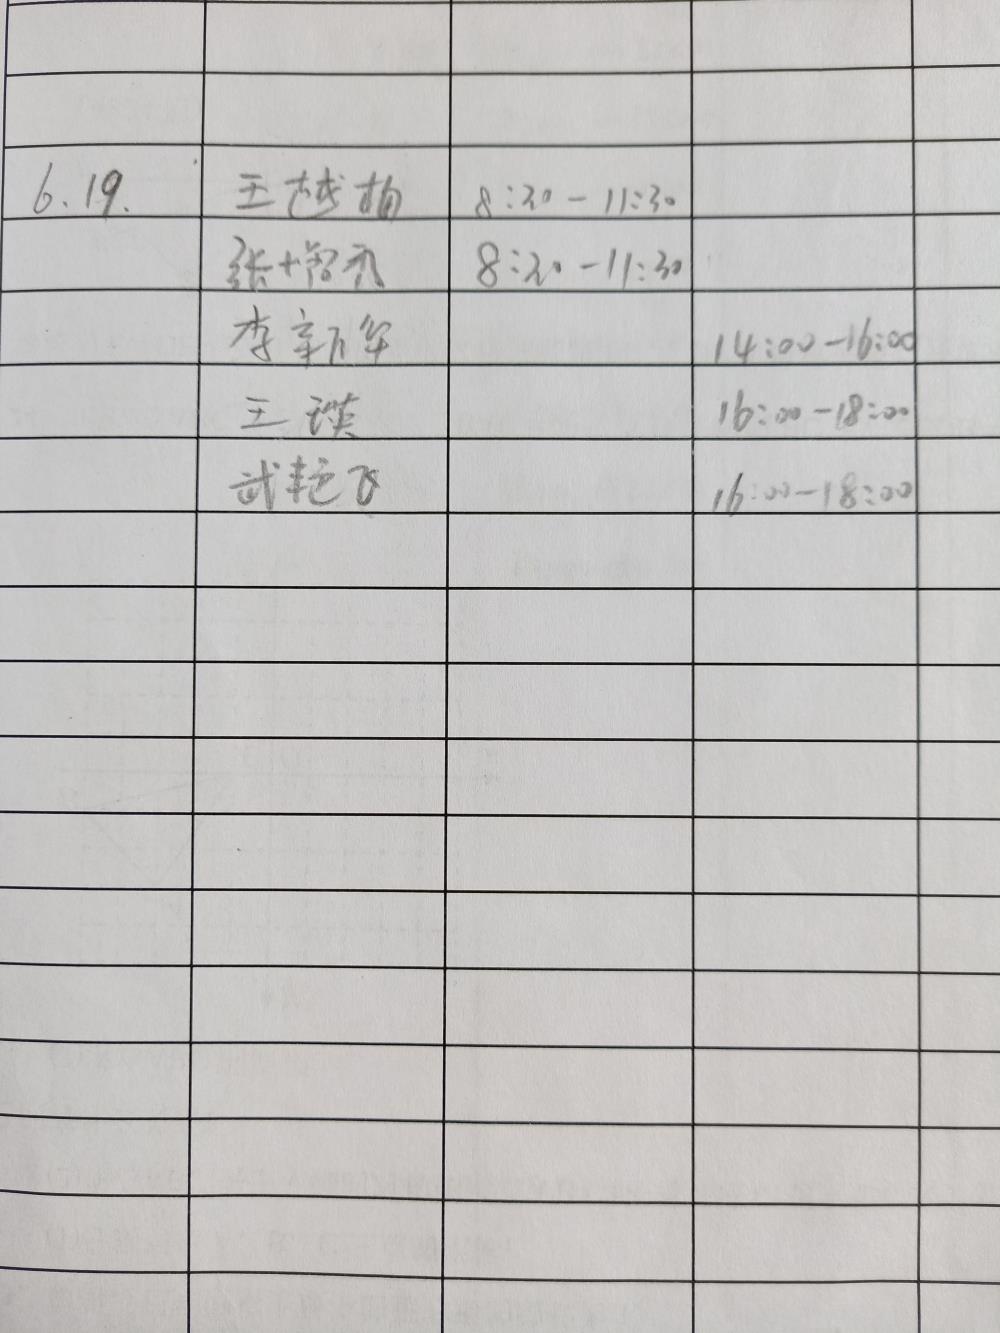 6.19. 王越楠 8:30-11:30
张 8:30-11:30
李新年 14:00-16:00
王瑛 16:00-18:00
武艳飞 16:00-18:00